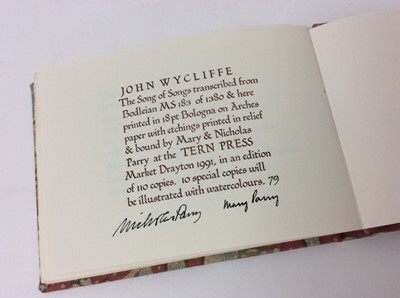 JOHN WYCLIFFE
The Song of Songs transcribed from
Bodleian MS 183 of 1380 & here
printed in 18pt Bologna on Arches
paper with etchings printed in relief
& bound by Mary & Nicholas
Parry at the TERN PRESS
Market Drayton 1991, in an edition
of 110 copies. 10 special copies will
be illustrated with watercolours. 79
Nicholas Parry Mary Parry